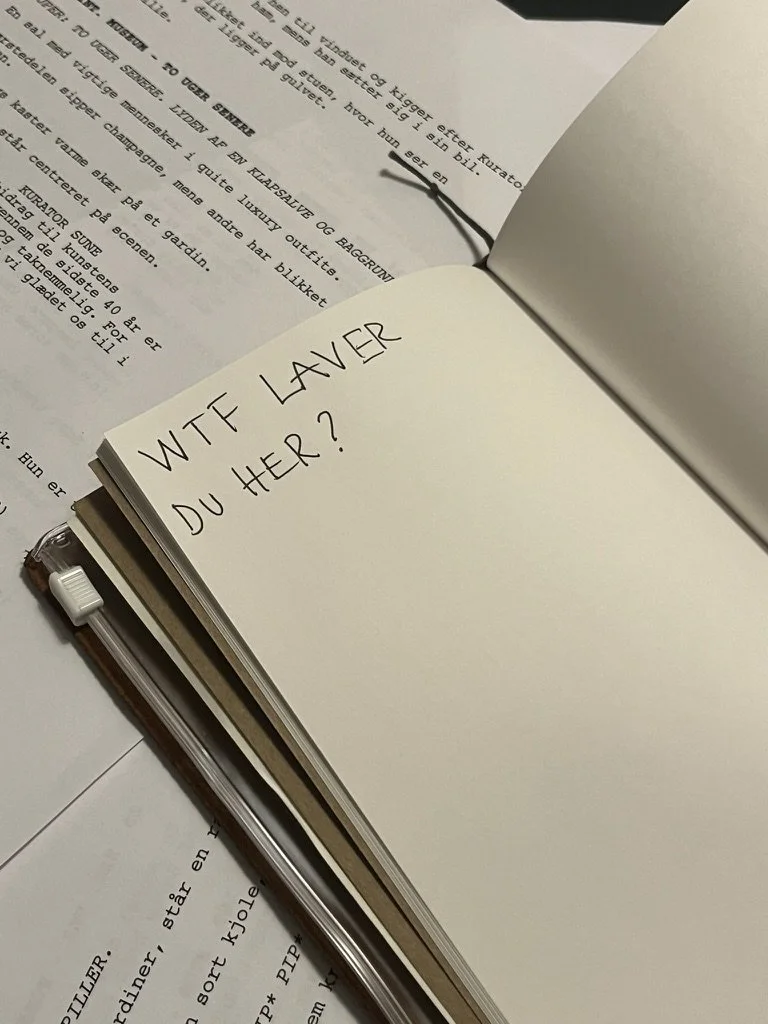 hen til vinduet og kigger efter Kurato
ham, mens han sætter sig i sin bil.
likket ind mod stuen, hvor hun ser en
der ligger på gulvet.
INT. MUSEUM - TO UGER SENERE
SUPER: TO UGER SENERE. LYDEN AF EN KLAPSALVE OG BAGGRUN
En sal med vigtige mennesker i quite luxury outfits.
rstedelen sipper champagne, mens andre har blikket
kaster varme skær på et gardin.
står centreret på scenen.
KURATOR SUNE
bidrag til kunstens
ennem de sidste 40 år er
og taknemmelig. For
vi glædet os til i
k. Hun er
WTF LAVER
DU HER?
PILLER.
rdiner, står en r
n sort kjole,
IP* PIP*
em kr